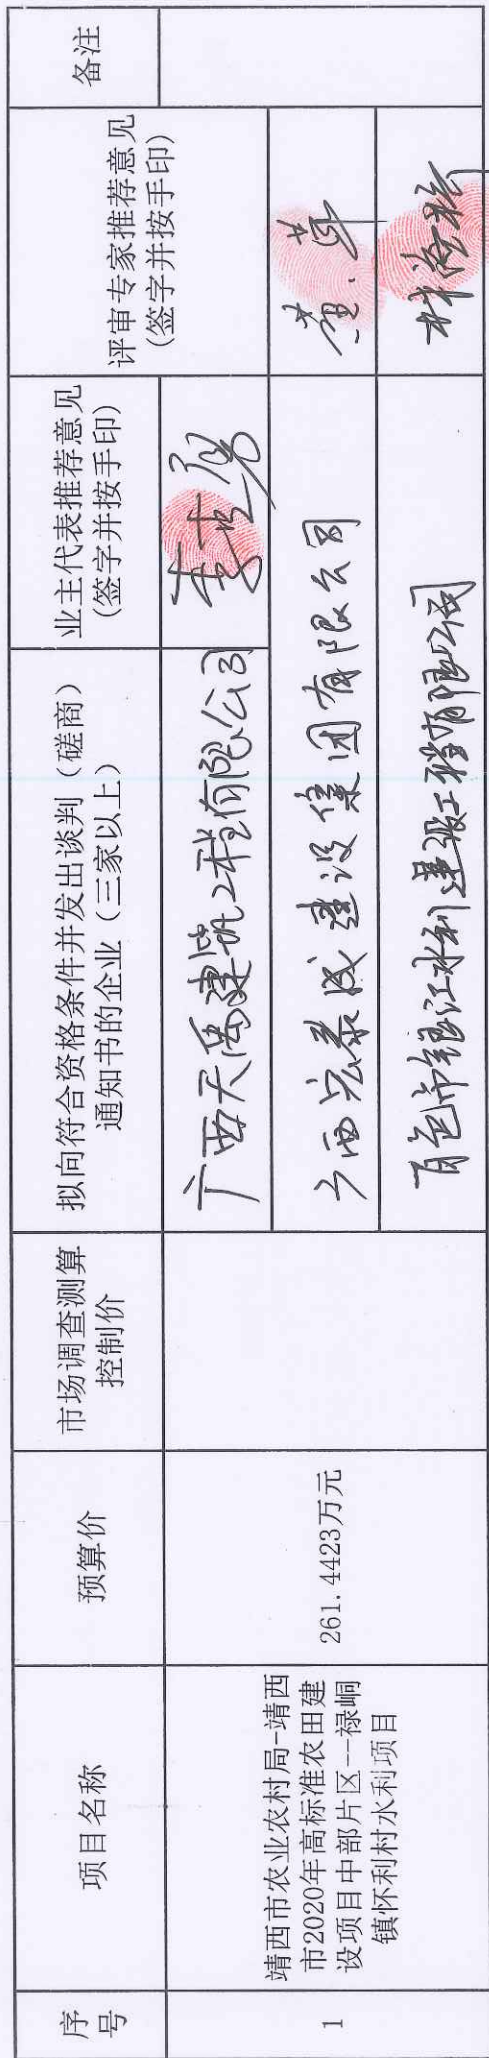 序
号
项目名称
预算价
市场调查测算
控制价
拟向符合资格条件并发出谈判（磋商）
通知书的企业（三家以上）
业主代表推荐意见
(签字并按手印)
评审专家推荐意见
(签字并按手印)
备注
1
靖西市农业农村局-靖西
市2020年高标准农田建
设项目中部片区--禄峒
镇怀利村水利项目
261.4423万元
广西天禹建筑工程有限公司
广西宏泰成建设集团有限公司
百色市银江水利建设工程有限公司